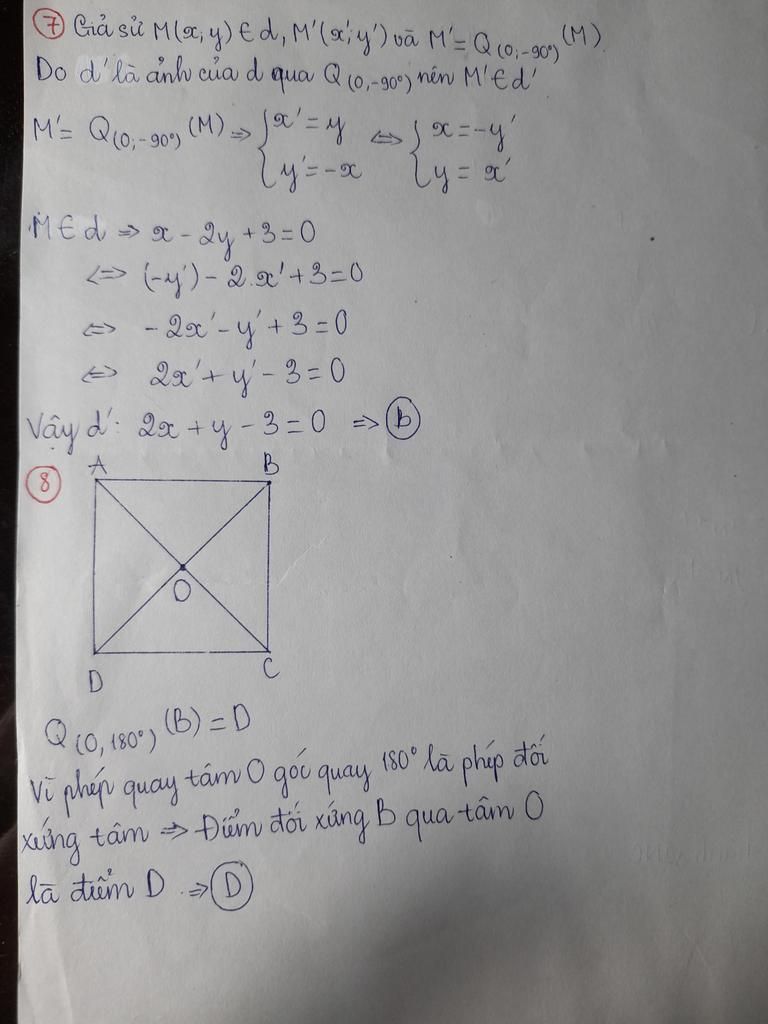 7 Giả sử M(x;y) ∈ d, M'(x';y') và M' = Q(0;-90°) (M)
Do d' là ảnh của d qua Q(0,-90°) nên M' ∈ d'
M' = Q(0;-90°) (M) => { x' = y <=> { x = -y'
y' = -x y = x'
M ∈ d => x - 2y + 3 = 0
<=> (-y') - 2.x' + 3 = 0
<=> -2x' - y' + 3 = 0
<=> 2x' + y' - 3 = 0
Vậy d': 2x + y - 3 = 0 => B
8 A B
O
D C
Q(0,180°) (B) = D
Vì phép quay tâm O góc quay 180° là phép đối
xứng tâm => Điểm đối xứng B qua tâm O
là điểm D => D